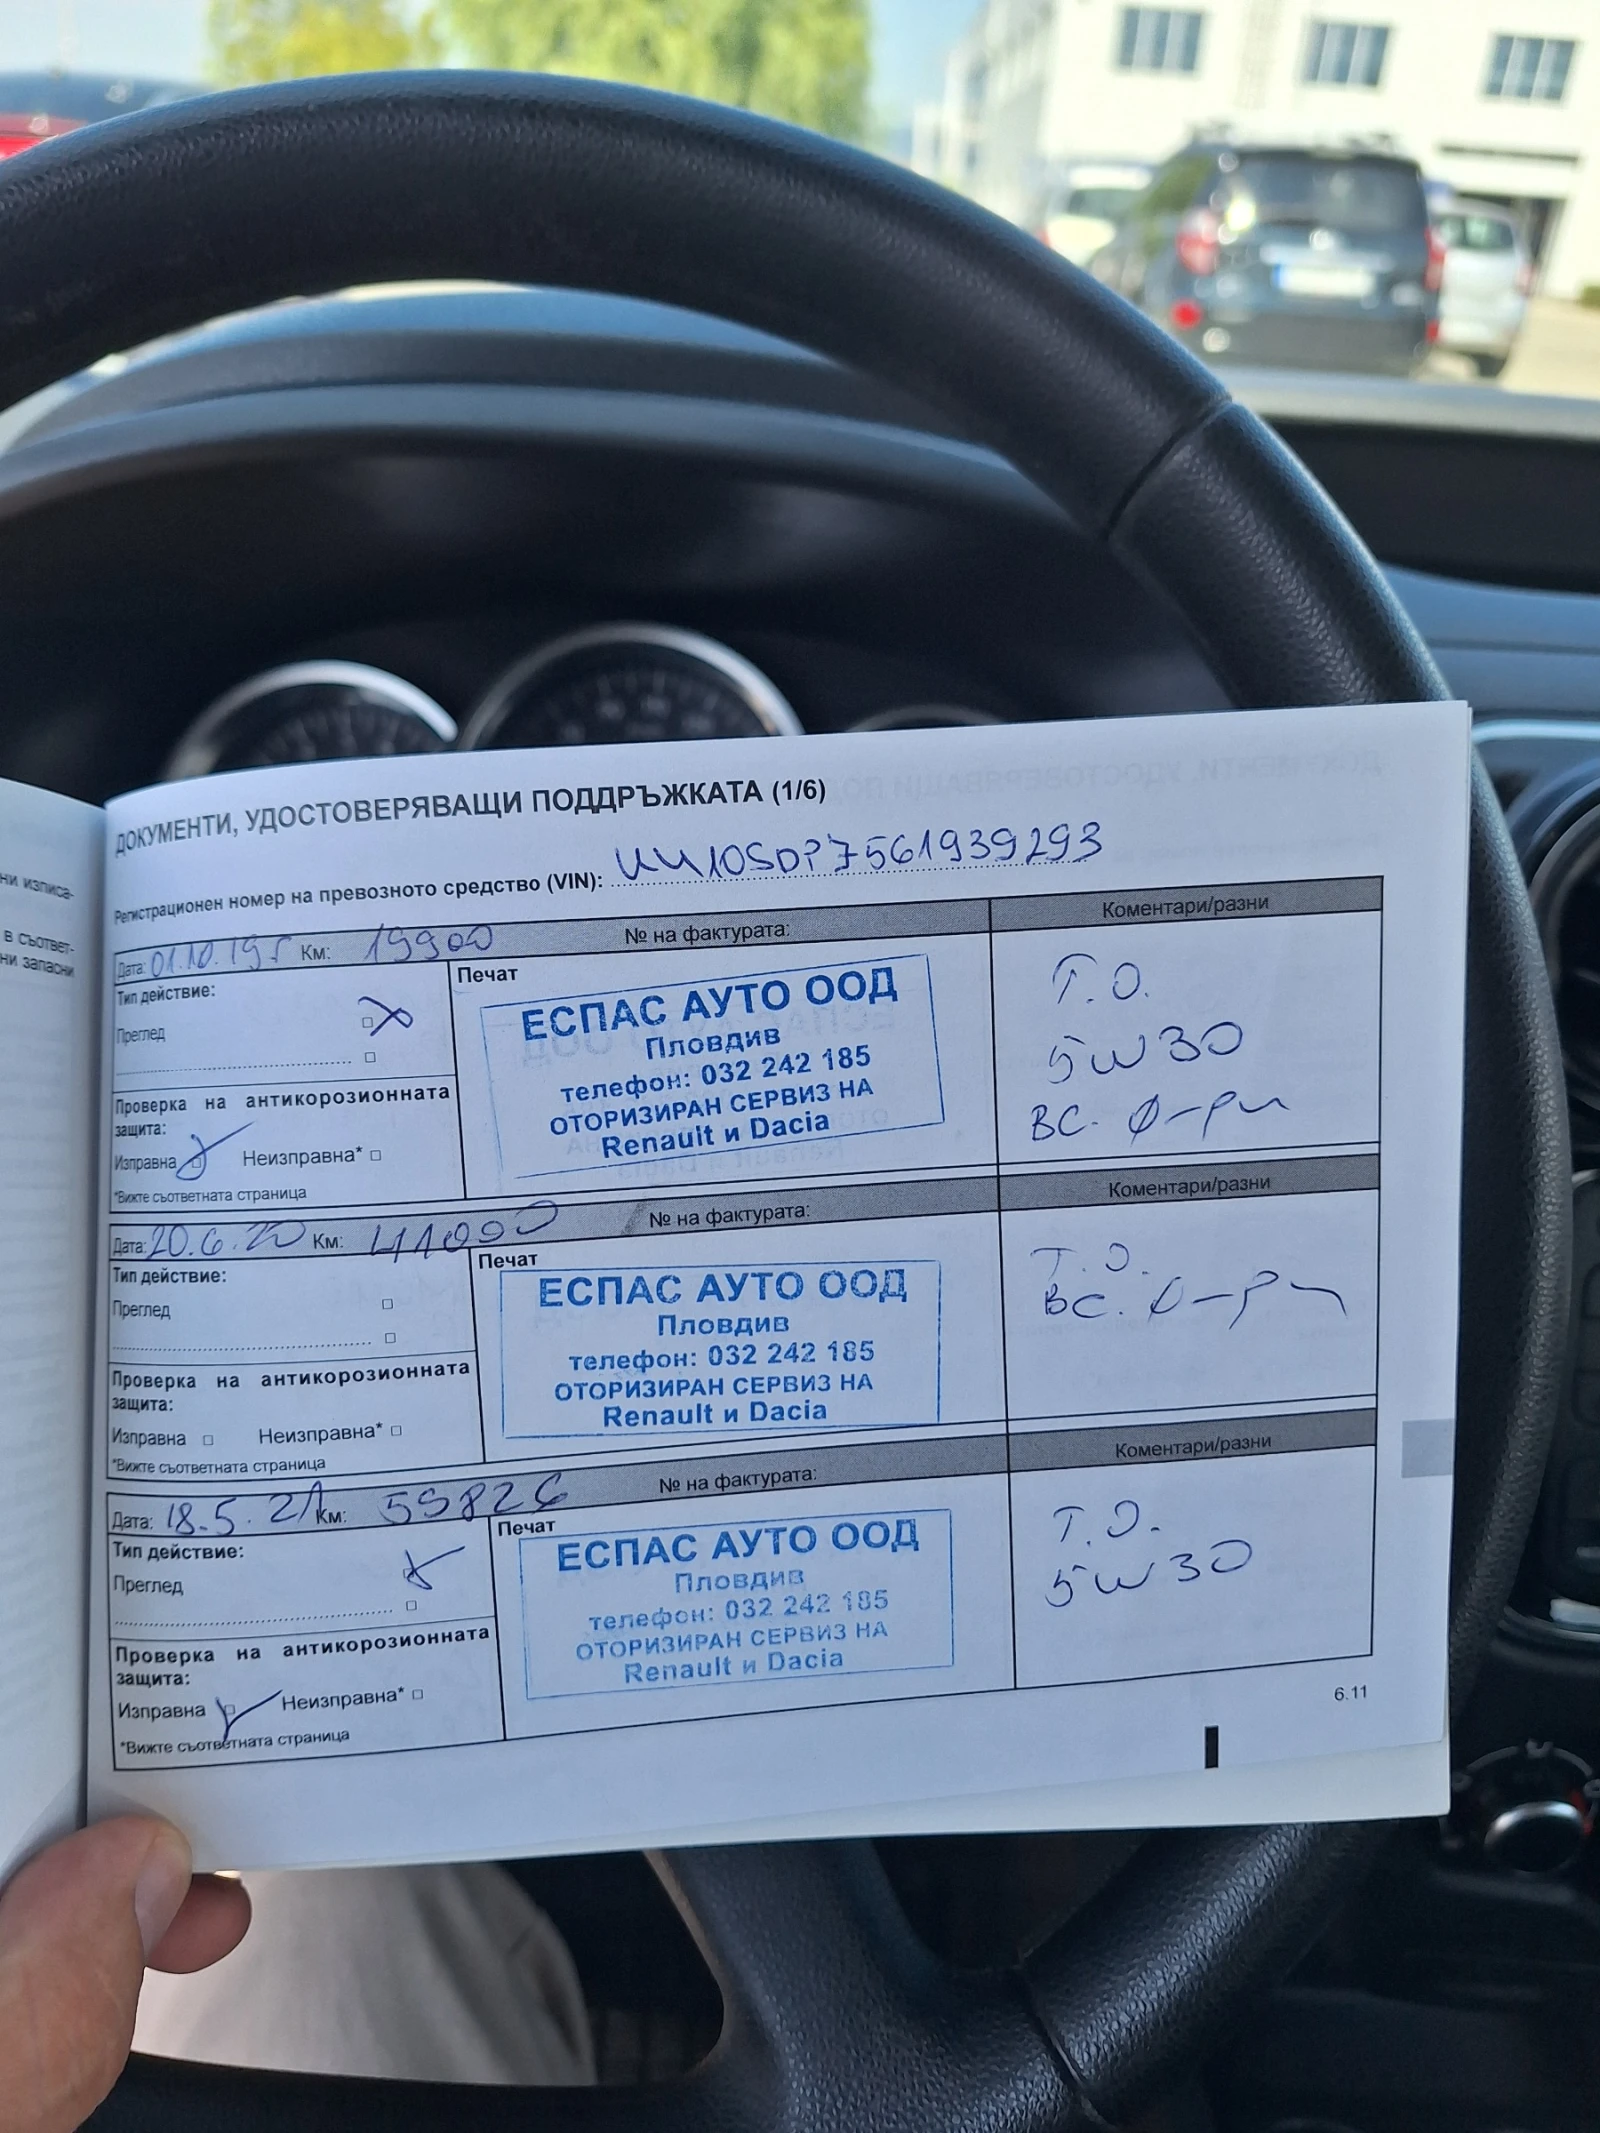 ни изписа-
в съответ-
ни запасни
ДОКУМЕНТИ, УДОСТОВЕРЯВАЩИ ПОДДРЪЖКАТА (1/6)
Регистрационен номер на превозното средство (VIN): UU10SDP7561939293
Дата: 01.10.19г Км: 19900 № на фактурата: Коментари/разни
Тип действие:
Преглед
Печат
ЕСПАС АУТО ООД
Пловдив
телефон: 032 242 185
ОТОРИЗИРАН СЕРВИЗ НА
Renault и Dacia
Т.О.
5W30
ВС. Ф-ри
Проверка на антикорозионната
защита:
Изправна Неизправна*
*Вижте съответната страница
Дата: 20.6.20 Км: 41000 № на фактурата: Коментари/разни
Тип действие:
Преглед
Печат
ЕСПАС АУТО ООД
Пловдив
телефон: 032 242 185
ОТОРИЗИРАН СЕРВИЗ НА
Renault и Dacia
Т.О.
ВС. Ф-ри
Проверка на антикорозионната
защита:
Изправна Неизправна*
*Вижте съответната страница
Дата: 18.5.21 Км: 59826 № на фактурата: Коментари/разни
Тип действие:
Преглед
Печат
ЕСПАС АУТО ООД
Пловдив
телефон: 032 242 185
ОТОРИЗИРАН СЕРВИЗ НА
Renault и Dacia
Т.О.
5W30
Проверка на антикорозионната
защита:
Изправна Неизправна*
*Вижте съответната страница
6.11